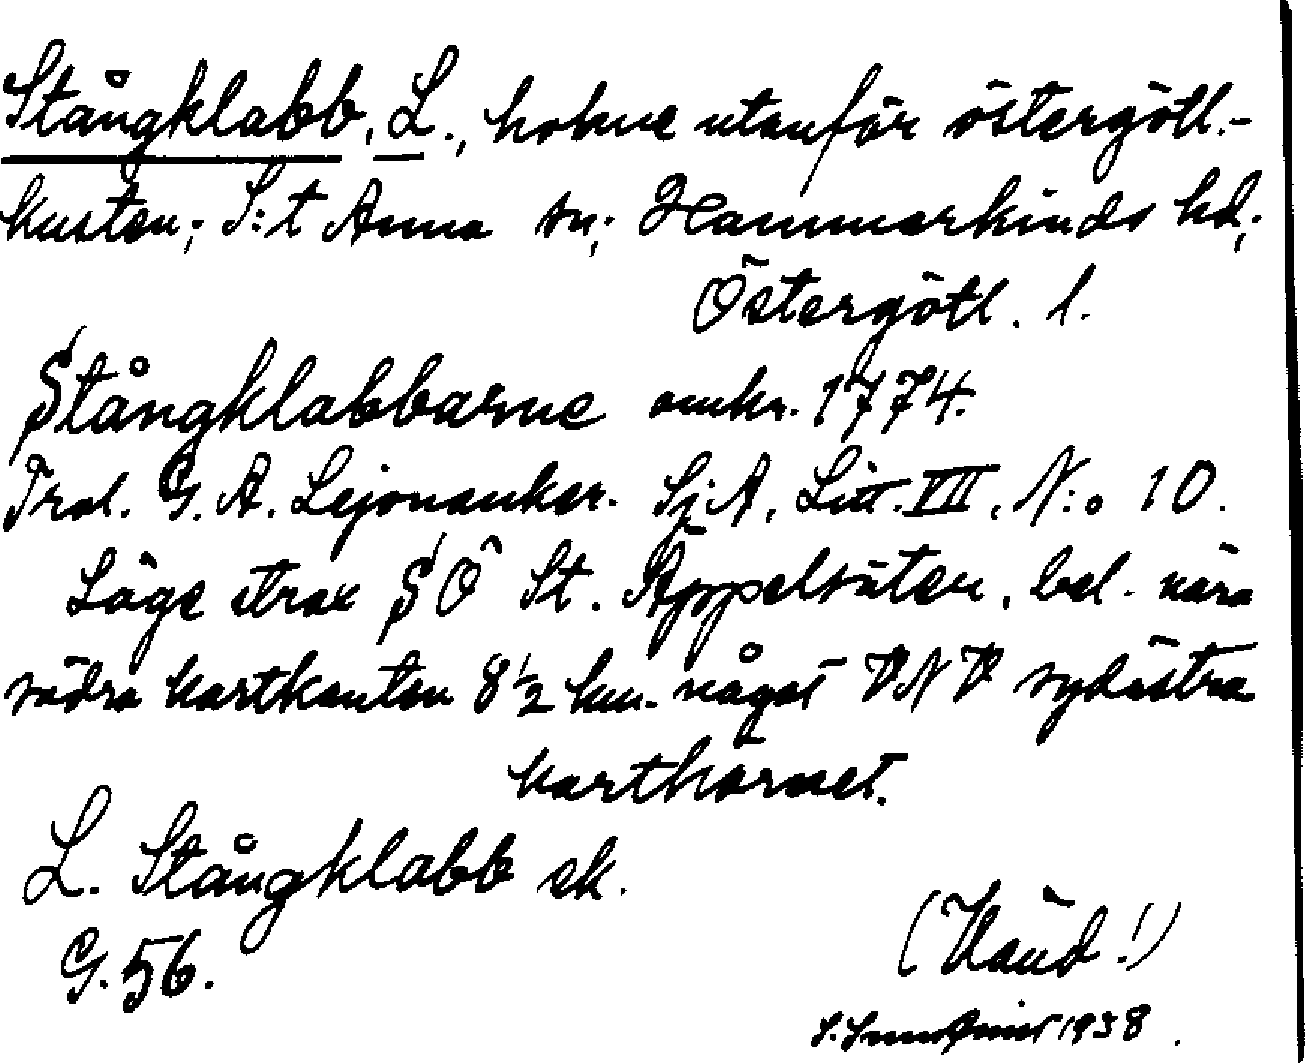 Stångklabb, L., holme utanför östergötl.-
kusten; S:t Anna sn; Hammarkinds hd,;
Östergötl. l.
Stångklabbarne omkr. 1774.
Trol. G. A. Lejonanker. SjA, Litt. VII, N:o 10.
Läge strax SÖ St. Äppelsäten, bel. nära
södra kartkanten 8 1/2 km. något VNV sydöstra
karthörnet.
L. Stångklabb ek.
G. 56.
(Vänd!)
1938.